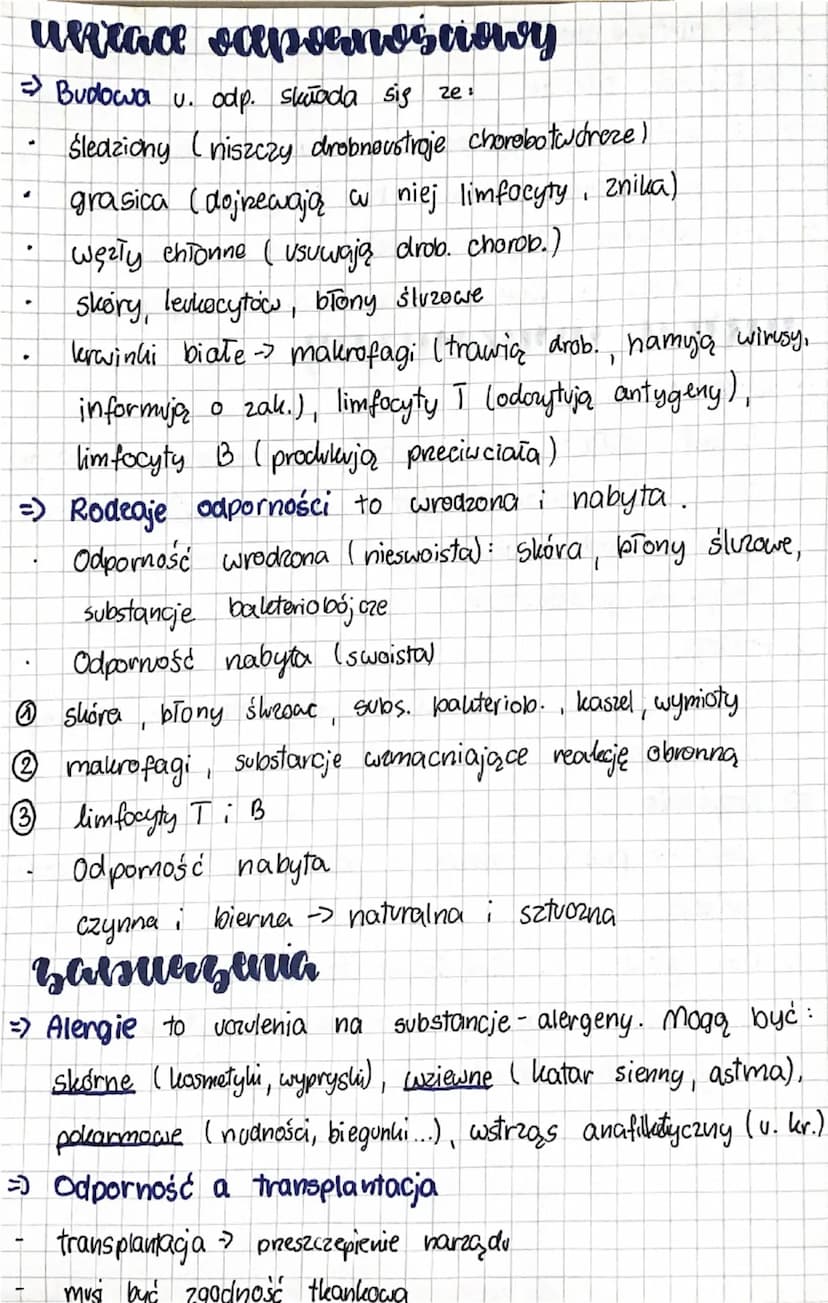 układ odpornościowy
=> Budowa u. odp. składa się ze:
· śledziony (niszczy drobnoustroje chorobotwórcze)
· grasica (dojrzewają w niej limfocyty, znika)
· węzły chłonne (usuwają drob. chorob.)
· skóry, leukocytów, błony śluzowe
· krwinki białe -> makrofagi (trawią drob., hamują wirusy,
informują o zak.), limfocyty T (odczytują antygeny),
limfocyty B (produkują przeciwciała)
=> Rodzaje odporności to wrodzona i nabyta.
· Odporność wrodzona (nieswoista): skóra, błony śluzowe,
substancje bakteriobójcze
· Odporność nabyta (swoista)
① skóra, błony śluzowe, subs. bakteriob., kaszel, wymioty
② makrofagi, substancje wzmacniające reakcję obronną
③ limfocyty T i B
- Odporność nabyta
czynna i bierna -> naturalna i sztuczna
zaburzenia
=> Alergie to uczulenia na substancje - alergeny. Mogą być:
skórne (kosmetyki, wypryski), wziewne (katar sienny, astma),
pokarmowe (nudności, biegunki...), wstrząs anafilaktyczny (u. kr.)
=> Odporność a transplantacja
- transplantacja -> przeszczepienie narządu
- musi być zgodność tkankowa